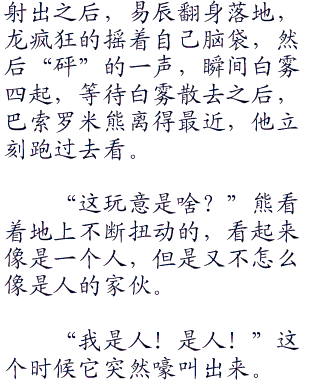 射出之后，易辰翻身落地，
龙疯狂的摇着自己脑袋，然
后“砰”的一声，瞬间白雾
四起，等待白雾散去之后，
巴索罗米熊离得最近，他立
刻跑过去看。
“这玩意是啥？”熊看
着地上不断扭动的，看起来
像是一个人，但是又不怎么
像是人的家伙。
“我是人！是人！”这
个时候它突然嚎叫出来。